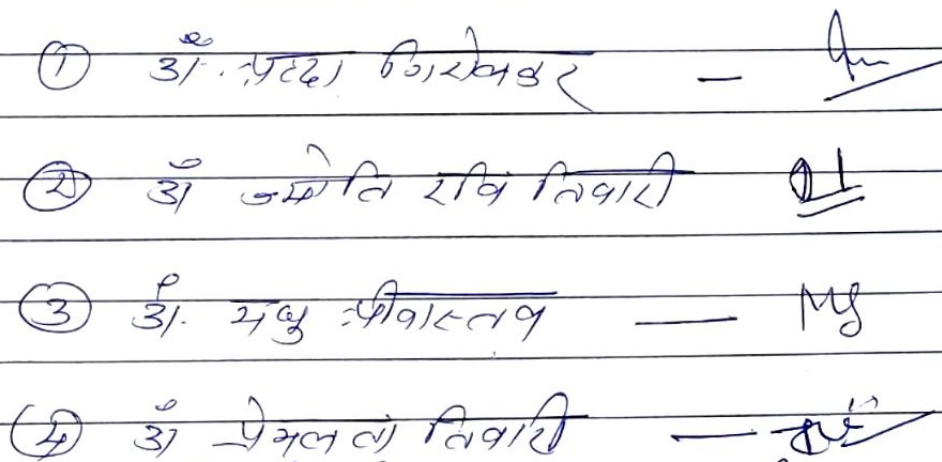 ① डॉ. श्रद्धा गिरोलकर –
② डॉ ज्योति रवि तिवारी
③ डॉ. मंजु श्रीवास्तव — MS
④ डॉ प्रेमलता तिवारी —